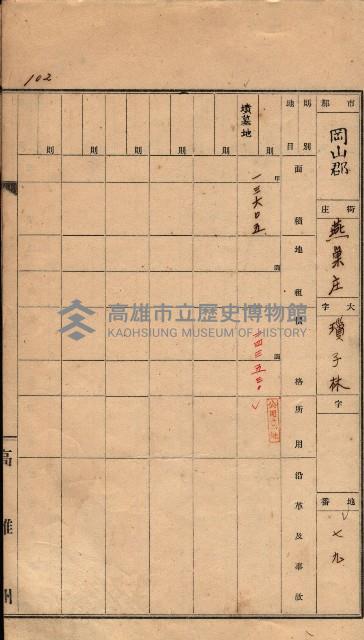 102
市郡 岡山郡
街庄 燕巢庄
大字 瓊子林
字
地番 七九
則別
地目
面積
地租
價格
所用
沿革及事故
則
墳墓地
甲
一三六〇五
圓
圓
一四三五三〇
則
則
則
則
則
則
高雄州
高雄市立歷史博物館
KAOHSIUNG MUSEUM OF HISTORY